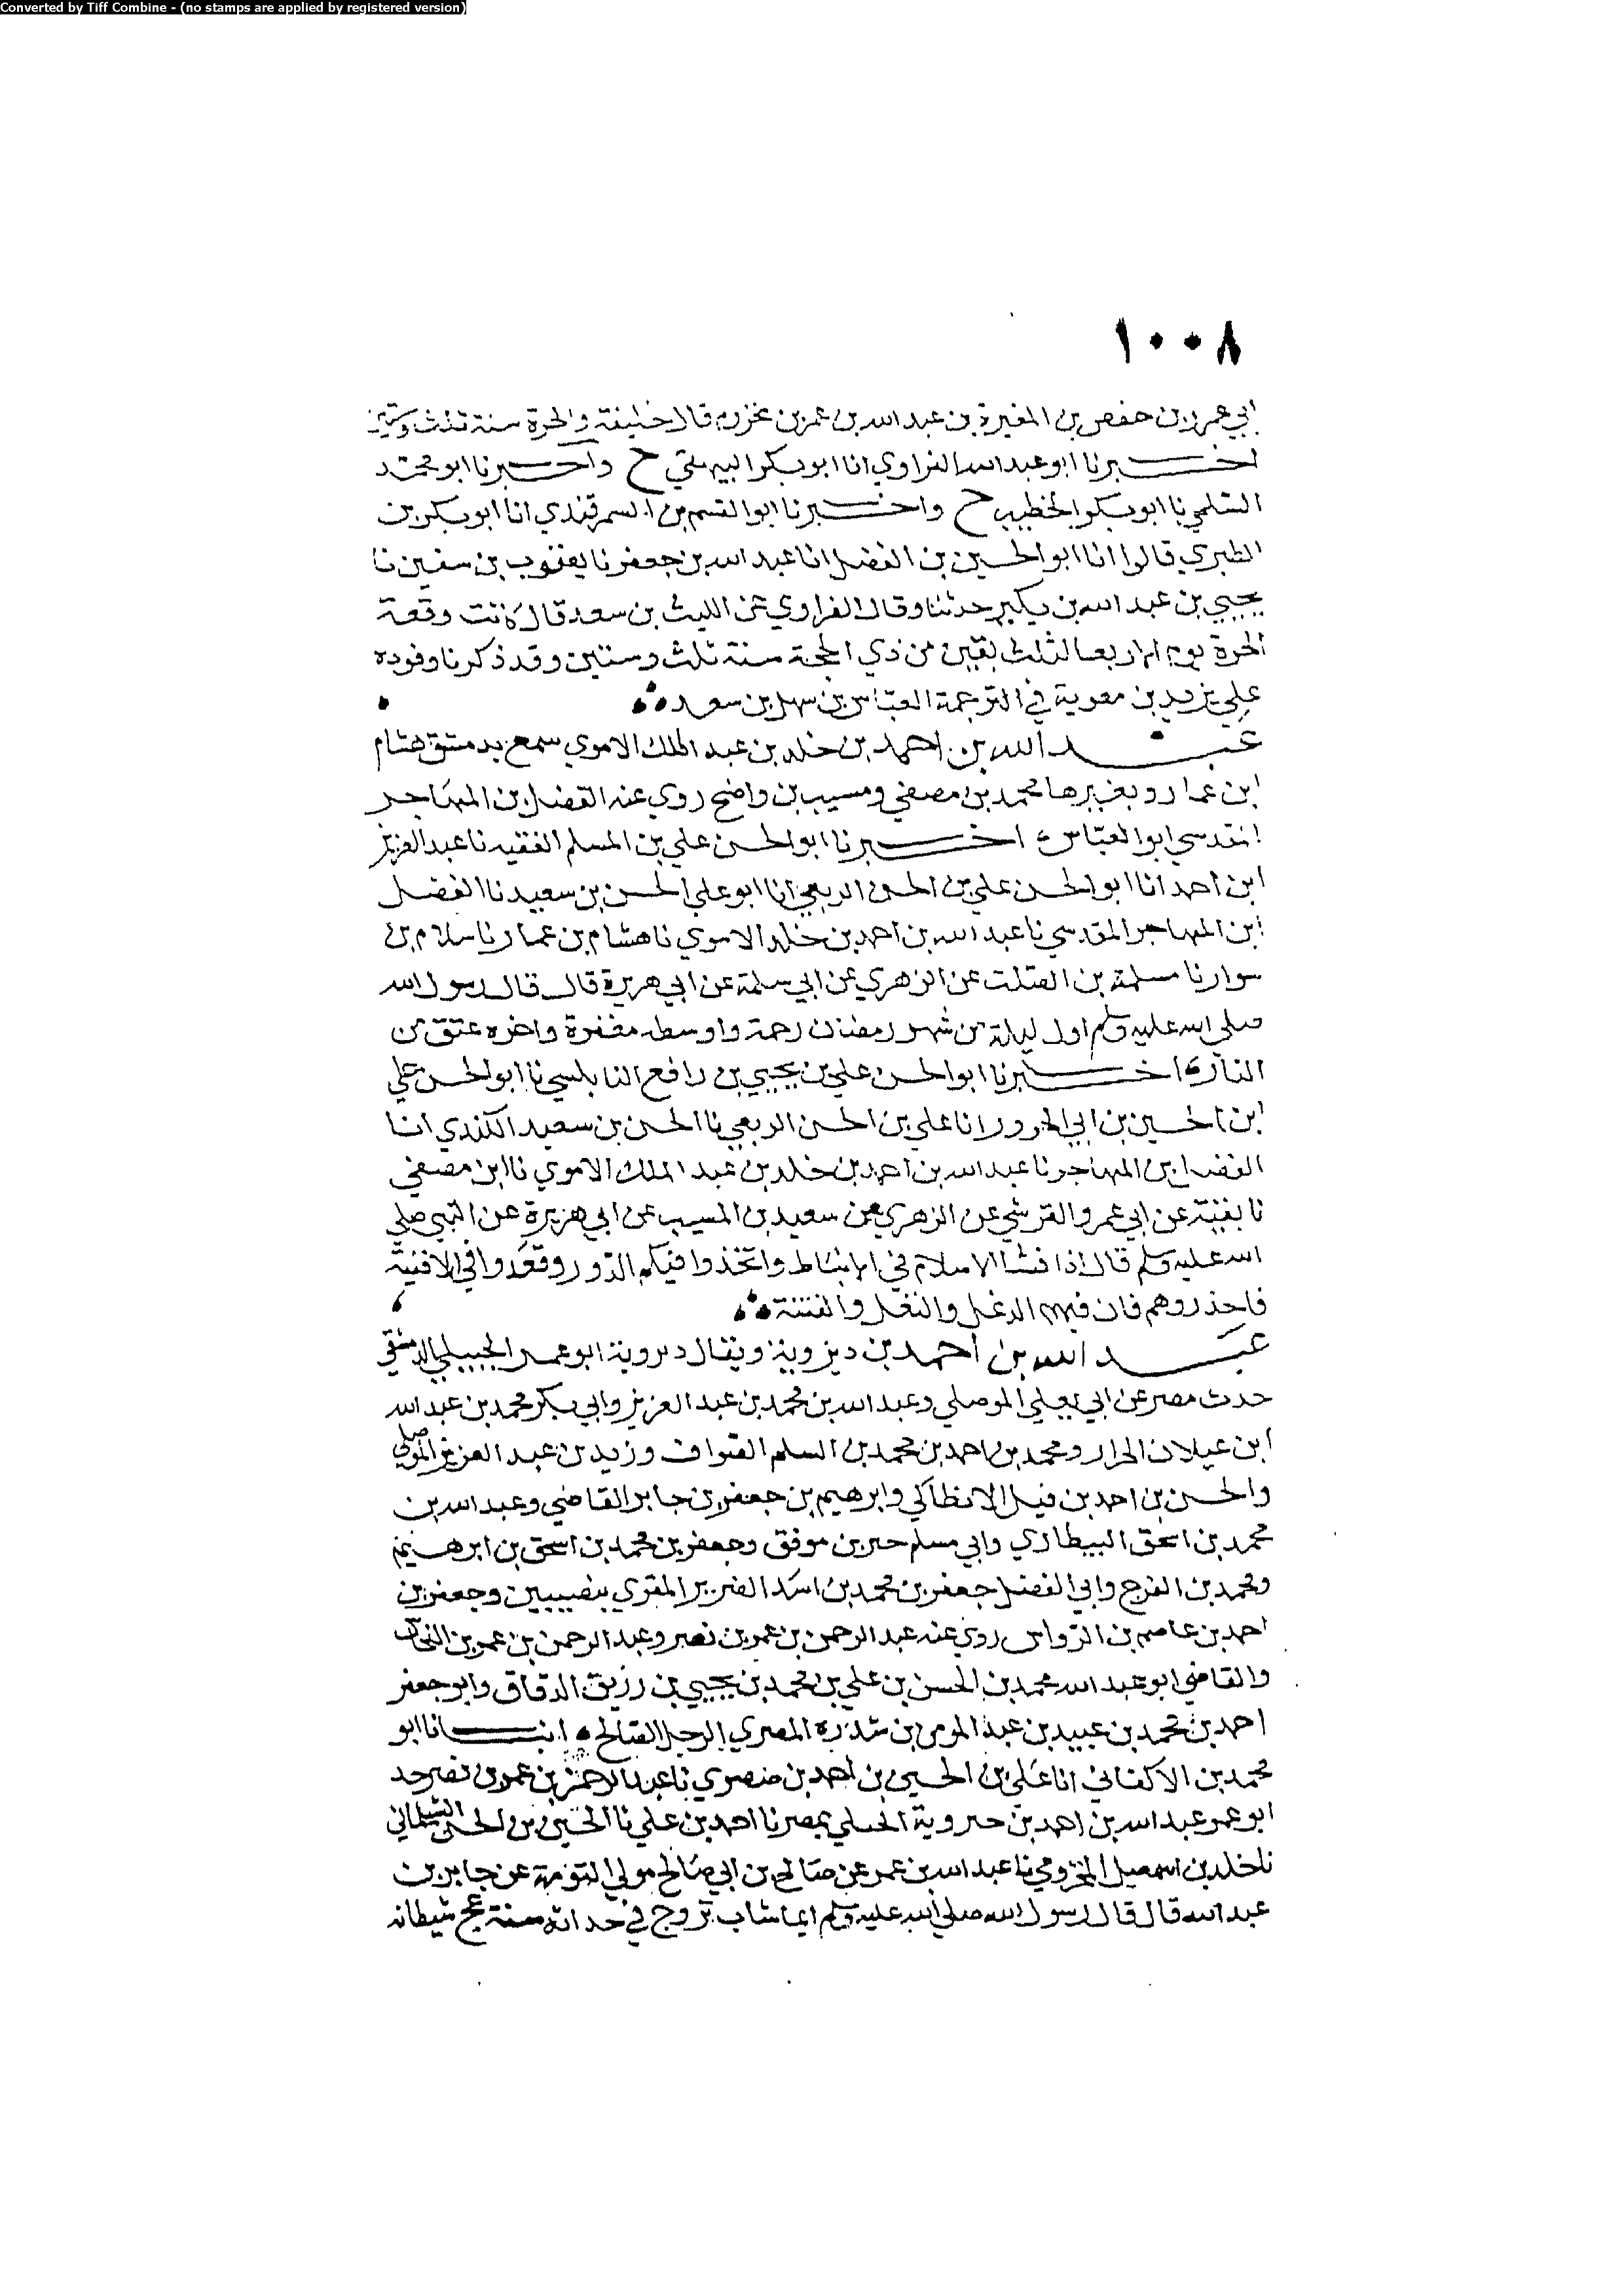 Converted by Tiff Combine - (no stamps are applied by registered version)
١٠٠٨
ابي عمرو بن حفص بن المغيرة بن عبد الله بن عمر بن مخزوم قال خليفة والحرة سنة ثلث وستين
اخبرنا ابو عبد الله الفراوي انا ابو بكر البيهقي ح واخبرنا ابو محمد
السلمي نا ابو بكر الخطيب ح واخبرنا ابو القسم بن السمرقندي انا ابو بكر بن
الطبري قالوا انا ابو الحسين بن الفضل انا عبد الله بن جعفر نا يعقوب بن سفين نا
يحيي بن عبد الله بن بكير حدثنا وقال الفراوي عن الليث بن سعد قال كانت وقعة
الحرة يوم الاربعا لثلث بقين من ذي الحجة سنة ثلث وستين وقد ذكرنا وفوده
علي يزيد بن معوية في الترجمة العباس بن سهل بن سعد
عبد الله بن احمد بن خلد بن عبد الملك الاموي سمع بدمشق هشام
ابن عمار وبغيرها محمد بن مصفي ومسيب بن واضح روي عنه الفضل بن المهاجر
المقدسي ابو العباس اخبرنا ابو الحسن علي بن المسلم الفقيه نا عبد العزيز
ابن احمد انا ابو الحسن علي بن الحسن الربعي انا ابو علي الحسن بن سعيد نا الفضل
ابن المهاجر المقدسي نا عبد الله بن احمد بن خلد الاموي نا هشام بن عمار نا سلام بن
سوار نا مسلمة بن الصلت عن الزهري عن ابي سلمة عن ابي هريرة قال قال رسول الله
صلي الله عليه وسلم اول ليلة من شهر رمضان رحمة واوسطه مغفرة واخره عتق من
النار اخبرنا ابو الحسن علي بن يحيي بن رافع النابلسي نا ابو الحسن علي
ابن الحسين بن ابي الحرور انا علي بن الحسن الربعي نا الحسن بن سعيد الكندي انا
الفضل بن المهاجر نا عبد الله بن احمد بن خلد بن عبد الملك الاموي نا ابن مصفي
نا بقية عن ابي عمرو القرشي عن الزهري عن سعيد بن المسيب عن ابي هريرة عن النبي صلي
الله عليه وسلم قال اذا فشا الاسلام في الانباط واتخذوا فيكم الدور وقعدوا في الافنية
فاحذروهم فان فيهم الدغل والنغل والفتنة
عبد الله بن احمد بن ديزوية ويقال دىروية ابو عمر الجبيلي الدمشقي
حدث مصر عن ابي يعلي الموصلي وعبد الله بن محمد بن عبد العزيز وابي بكر محمد بن عبد الله
ابن غيلان الحرار ومحمد بن احمد بن محمد بن السلم الصواف وزيد بن عبد العزيز الموصلي
والحسن بن احمد بن فيل الانطاكي وابرهيم بن جعفر بن جابر القاضي وعبد الله بن
محمد بن اسحق البيطاري وابي مسلم حبر بن موفق وجعفر بن محمد بن اسحق بن ابرهيم
ومحمد بن الفرج وابي الفضل جعفر بن محمد بن اسد الضرير المقري بنصيبين وجعفر بن
احمد بن عاصم بن الرواس روي عنه عبد الرحمن بن عمر بن نصر وعبد الرحمن بن عمر بن النحاس
والقاضي ابو عبد الله محمد بن الحسن بن علي بن محمد بن يحيي بن رزيق الدقاق وابو جعفر
احمد بن محمد بن عبيد بن عبد المومن بن شذره المصري الرجل الصالح انبانا ابو
محمد بن الاكفاني انا علي بن الحسين بن احمد بن صصري نا عبد الرحمن بن عمر بن نصر حد
ابو عمر عبد الله بن احمد بن بمصر نا احمد بن علي نا الحسين بن الحسن الشيلماني
نا خلد بن اسمعيل المخزومي نا عبد الله بن عمر عن صالح بن ابي صالح مولي التومة عن جابر بن
عبد الله قال قال رسول الله صلي الله عليه وسلم ايما شاب تزوج في حداثة سنة عج شيطانه